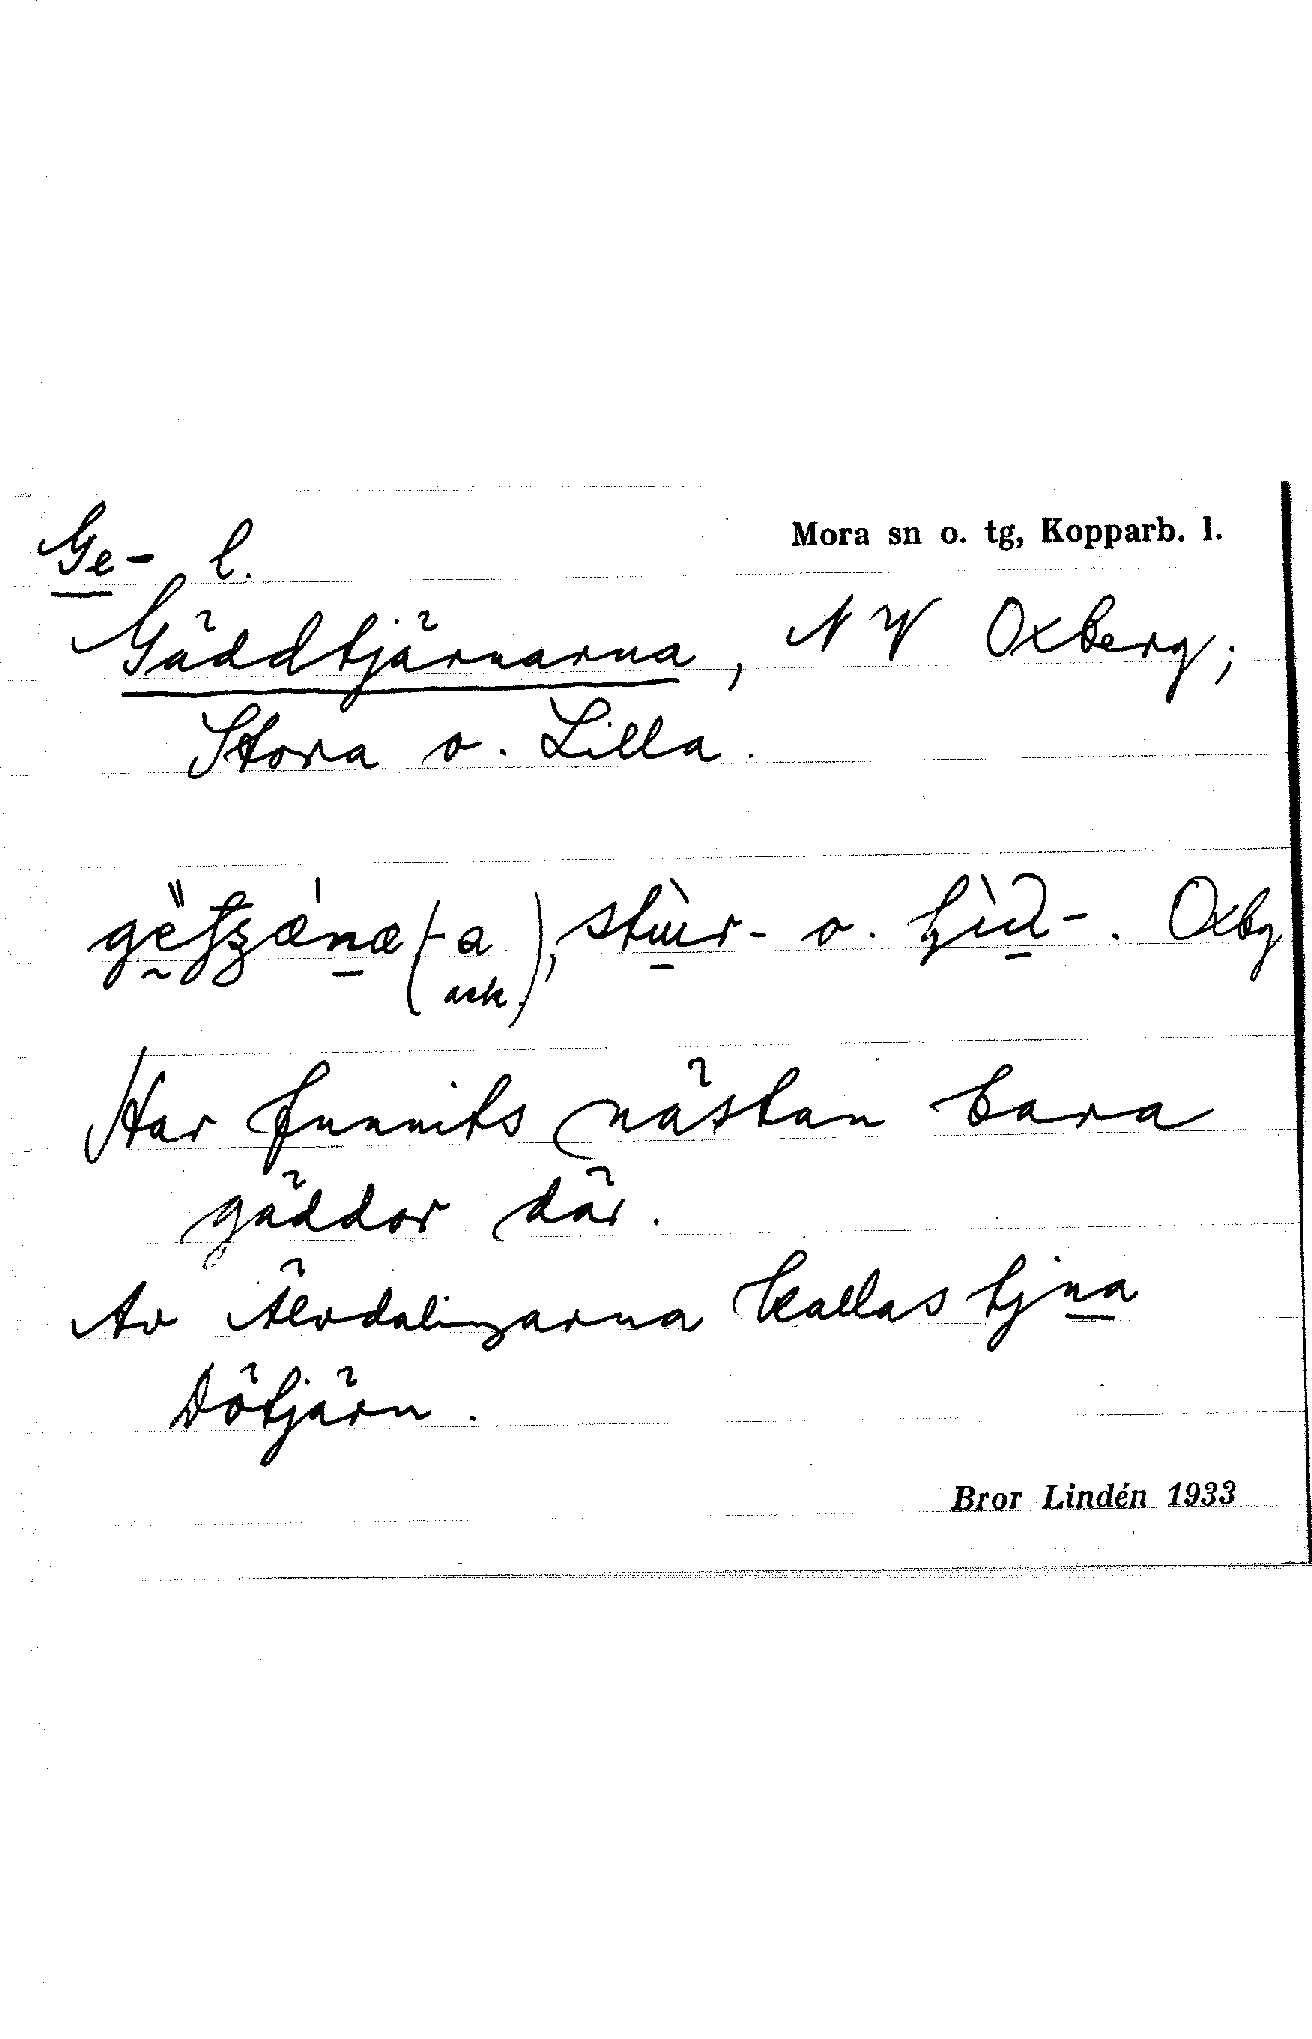 Ge- l.
Mora sn o. tg, Kopparb. l.
Gäddtjärnarna, NV Oxberg;
Stora o. Lilla.
(-a ack.), o. Oxbg
Har funnits nästan bara
gäddor där.
Av Älvdalingarna kallas tjna
Dötjärn.
Bror Lindén 1933